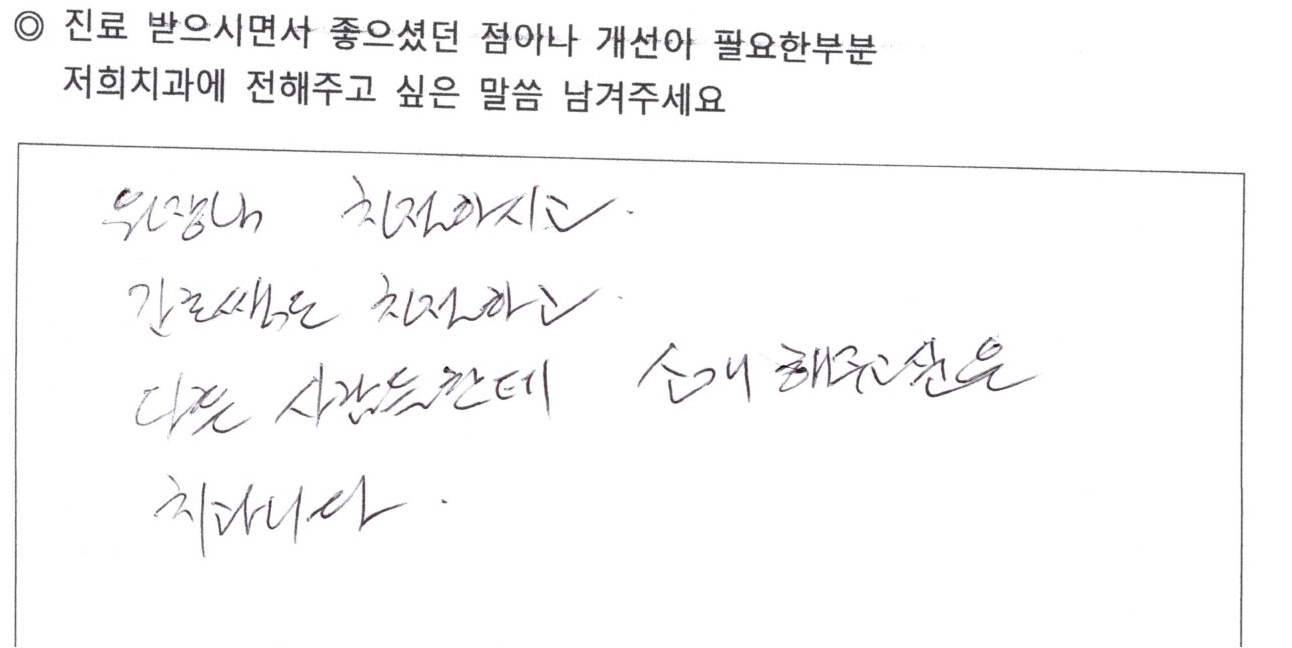 ◎ 진료 받으시면서 좋으셨던 점이나 개선이 필요한부분
저희치과에 전해주고 싶은 말씀 남겨주세요
원장님 친절하시고.
간호쌤도 친절하고.
다른 사람들한테 소개 해주고싶은
치과니다.